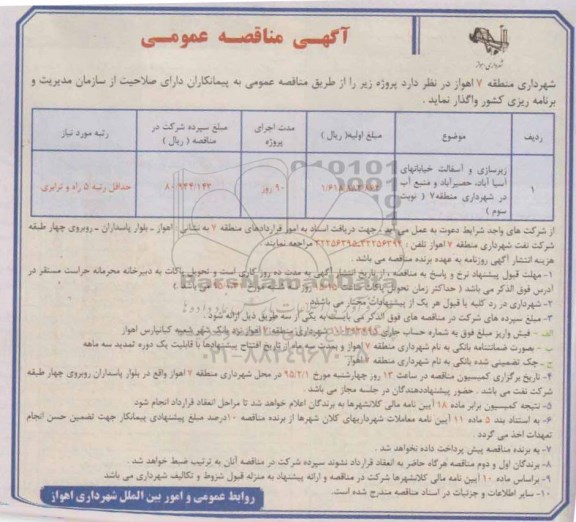 آگهی مناقصه عمومی
شهرداری اهواز
شهرداری منطقه ۷ اهواز در نظر دارد پروژه زیر را از طریق مناقصه عمومی به پیمانکاران دارای صلاحیت از سازمان مدیریت و
برنامه ریزی کشور واگذار نماید .
ردیف موضوع مبلغ اولیه( ریال ) مدت اجرای پروژه مبلغ سپرده شرکت در مناقصه ( ریال ) رتبه مورد نیاز
۱ زیرسازی و آسفالت خیابانهای آسیا آباد، حصیرآباد و منبع آب در شهرداری منطقه۷ ( نوبت سوم ) ۹۰ روز ۸۰/۹۴۴/۱۴۳ حداقل رتبه ۵ راه و ترابری
از شرکت های واجد شرایط دعوت به عمل می آید ، جهت دریافت اسناد به امور قراردادهای منطقه ۷ به نشانی : اهواز ـ بلوار پاسداران ـ روبروی چهار طبقه
شرکت نفت شهرداری منطقه ۷ اهواز تلفن : مراجعه نمایند.
هزینه انتشار آگهی روزنامه به عهده برنده مناقصه می باشد .
۱- مهلت قبول پیشنهاد نرخ و پاسخ به مناقصه ، از تاریخ انتشار آگهی به مدت ده روز کاری است و تحویل پاکات به دبیرخانه محرمانه حراست مستقر در
آدرس فوق الذکر می باشد ( حداکثر زمان تحویل پاکات
۲- شهرداری در رد کلیه یا قبول هر یک از پیشنهادات مختار می باشد .
۳- مبلغ سپرده های شرکت در مناقصه های فوق الذکر می بایست به یکی از سه طریق ذیل ارائه شود:
الف - فیش واریز مبلغ فوق به شماره حساب جاری شهرداری منطقه ۷ اهواز نزد بانک شهر شعبه کیانپارس اهواز
ب - بصورت ضمانتنامه بانکی به نام شهرداری منطقه ۷ اهواز و بمدت سه ماه از تاریخ افتتاح پیشنهادها با قابلیت یک دوره تمدید سه ماهه
ج - چک تضمینی شده بانکی به نام شهرداری منطقه ۷ اهواز
۴- تاریخ برگزاری کمیسیون مناقصه در ساعت ۱۳ روز چهارشنبه مورخ ۹۵/۲/۱ در محل شهرداری منطقه ۷ اهواز واقع در بلوار پاسداران روبروی چهار طبقه
شرکت نفت می باشد . حضور پیشنهاددهندگان در جلسه مجاز می باشد
۵- نتیجه کمیسیون برابر ماده ۱۸ آیین نامه مالی کلانشهرها به برندگان اعلام خواهد شد تا مراحل انعقاد قرارداد انجام شود
۶- به استناد بند ۵ ماده ۱۱ آیین نامه معاملات شهرداریهای کلان شهرها از برنده مناقصه ۱۰درصد مبلغ پیشنهادی پیمانکار جهت تضمین حسن انجام
تعهدات اخذ می گردد .
۷- به برنده مناقصه پیش پرداخت داده نخواهد شد .
۸- برندگان اول و دوم مناقصه هرگاه حاضر به انعقاد قرارداد نشوند سپرده شرکت در مناقصه آنان به ترتیب ضبط خواهد شد .
۹- براساس ماده ۱۰ آیین نامه مالی کلانشهرها شرکت در مناقصه و ارائه پیشنهاد به منزله قبول شروط و تکالیف شهرداری می باشد
۱۰- سایر اطلاعات و جزئیات در اسناد مناقصه مندرج شده است.
روابط عمومی و امور بین الملل شهرداری اهواز
۰۲۱-۸۸۳۴۹۶۷۰-۵